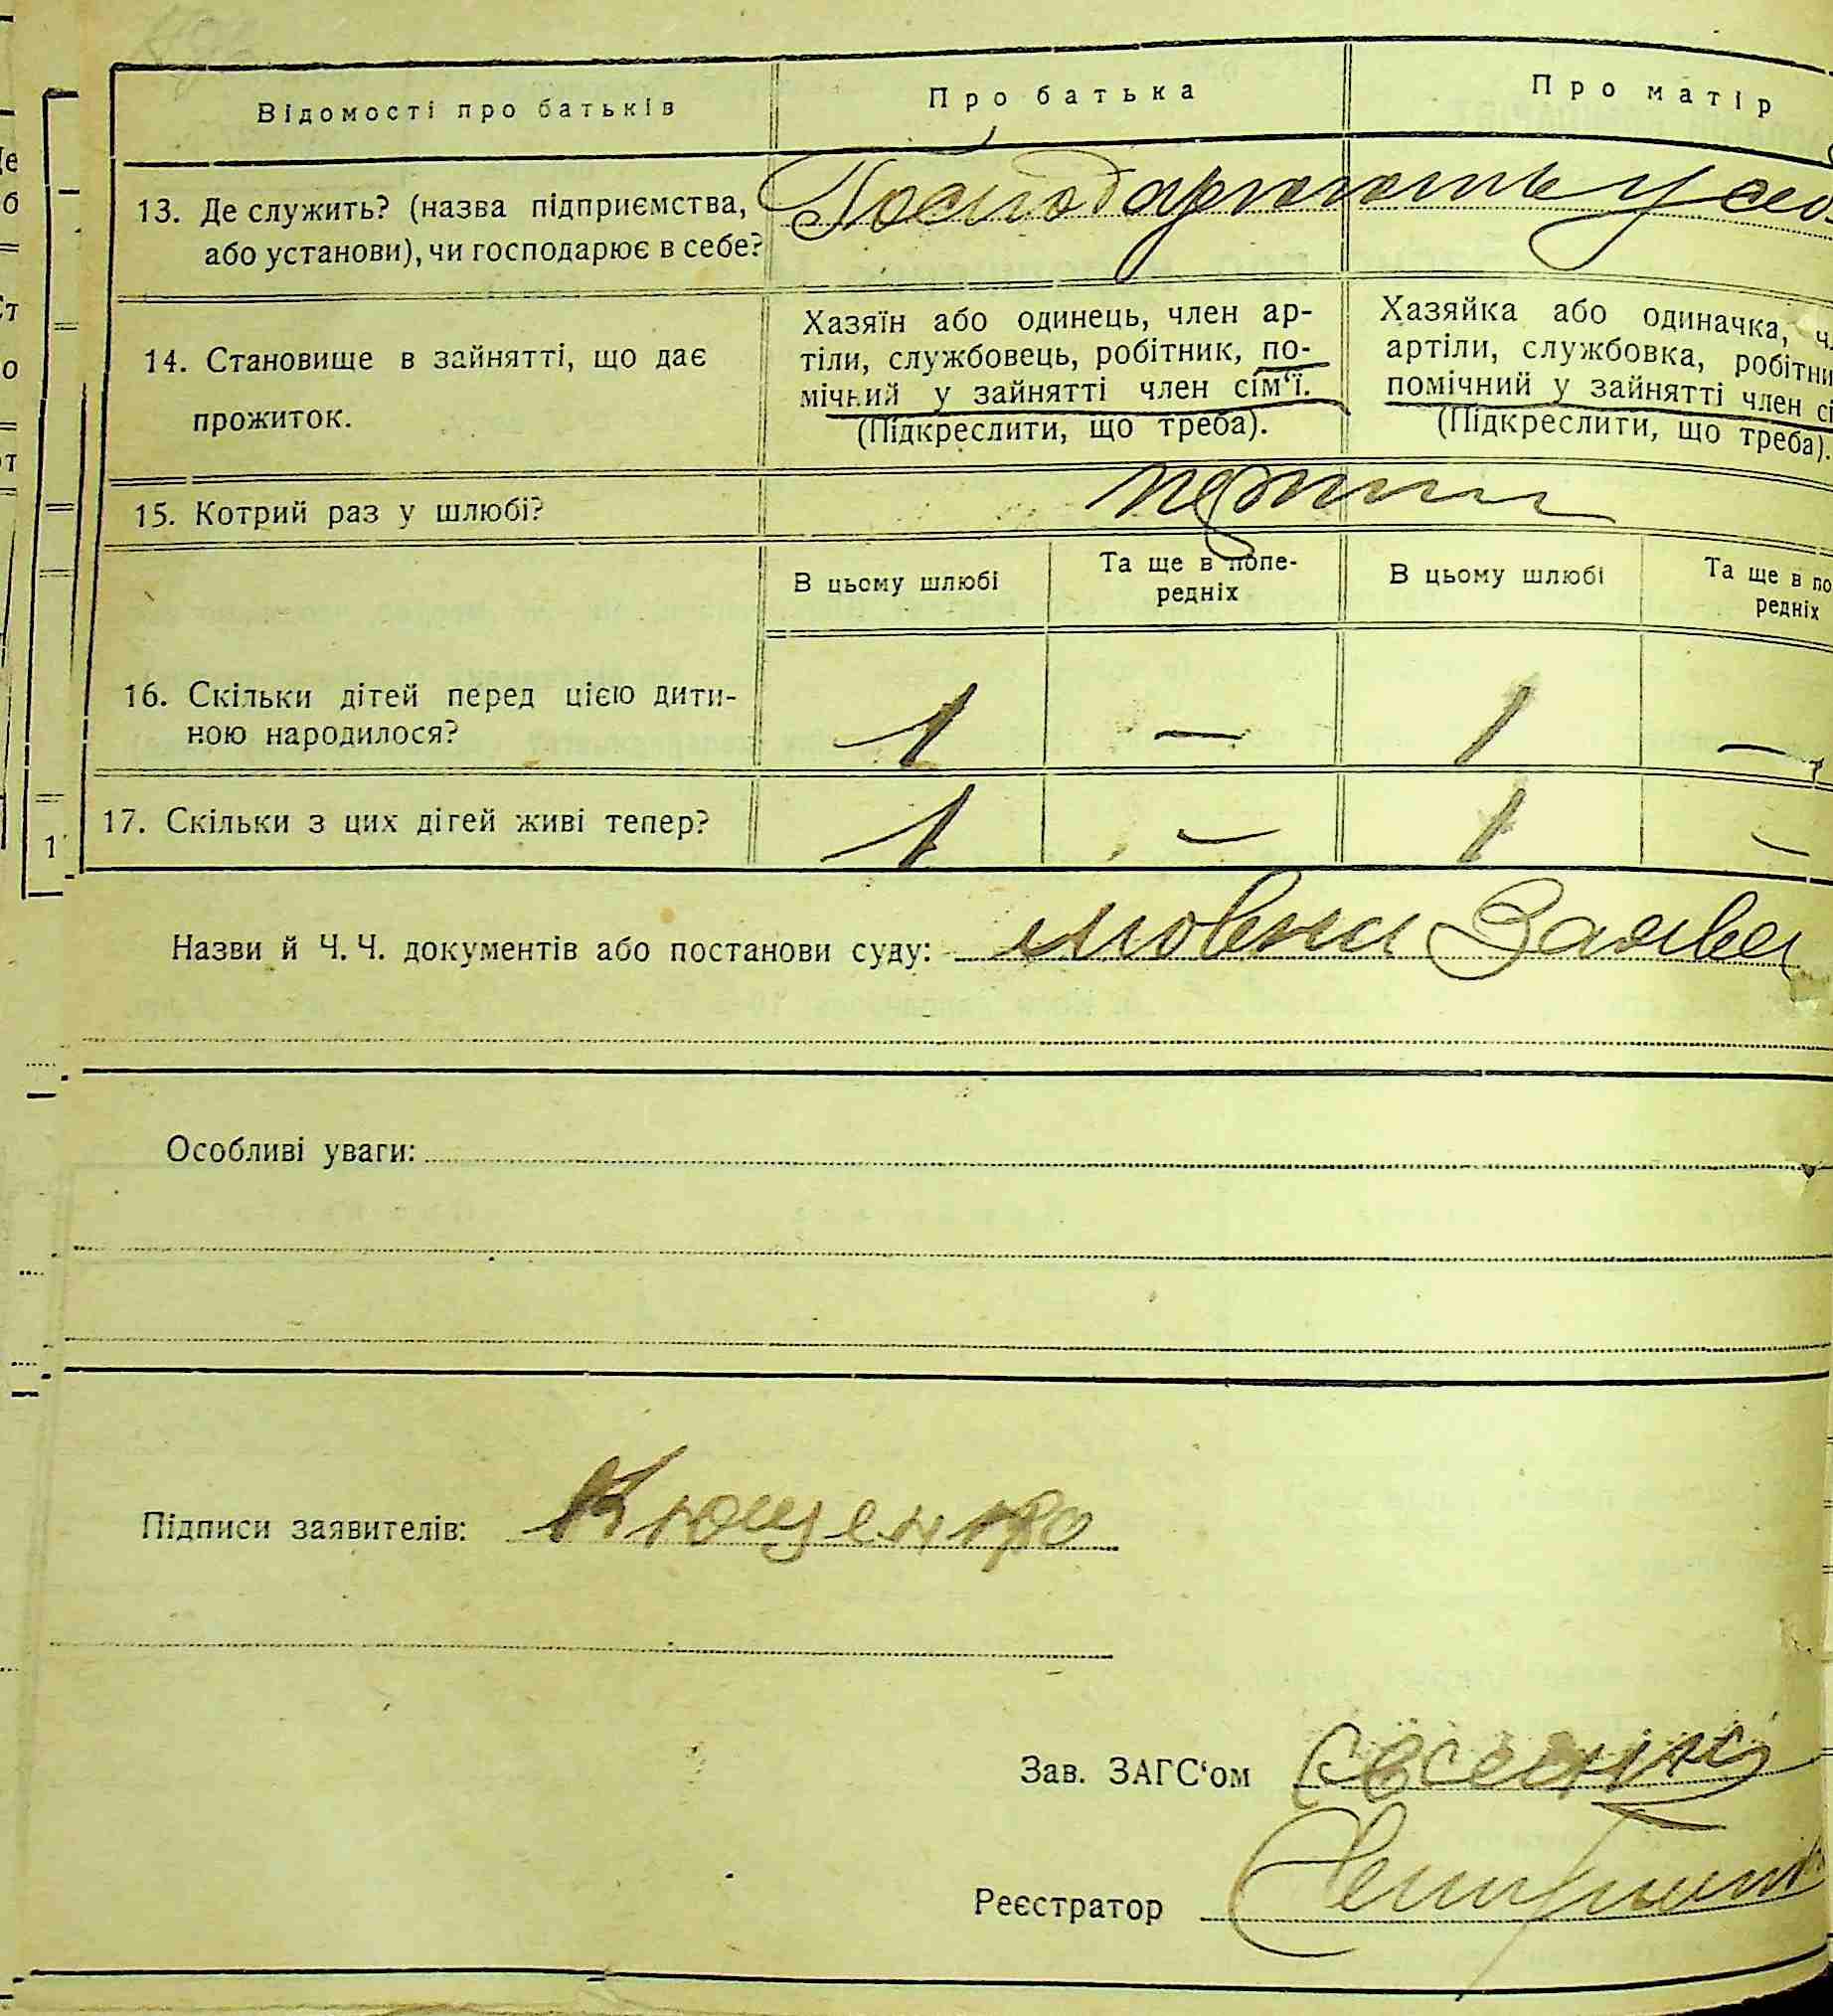 Відомості про батьків
Про батька
Про матір
13. Де служить? (назва підприємства,
або установи), чи господарює в себе?
Господарюють у
14. Становище в зайнятті, що дає
прожиток.
Хазяїн або одинець, член ар-
тіли, службовець, робітник, по-
мічний у зайнятті член сім‘ї.
(Підкреслити, що треба).
Хазяйка або одиначка, ч
артіли, службовка, робітни
помічний у зайнятті член сі
(Підкреслити, що треба).
15. Котрий раз у шлюбі?
В цьому шлюбі
Та ще в попе-
редніх
В цьому шлюбі
Та ще в по
редніх
16. Скільки дітей перед цією дити-
ною народилося?
1 — 1 —
17. Скільки з цих дітей живі тепер?
1 — 1 —
Назви й Ч. Ч. документів або постанови суду: мовна Заява
Особливі уваги:
Підписи заявителів: Ющенко
Зав. ЗАГС‘ом
Реєстратор